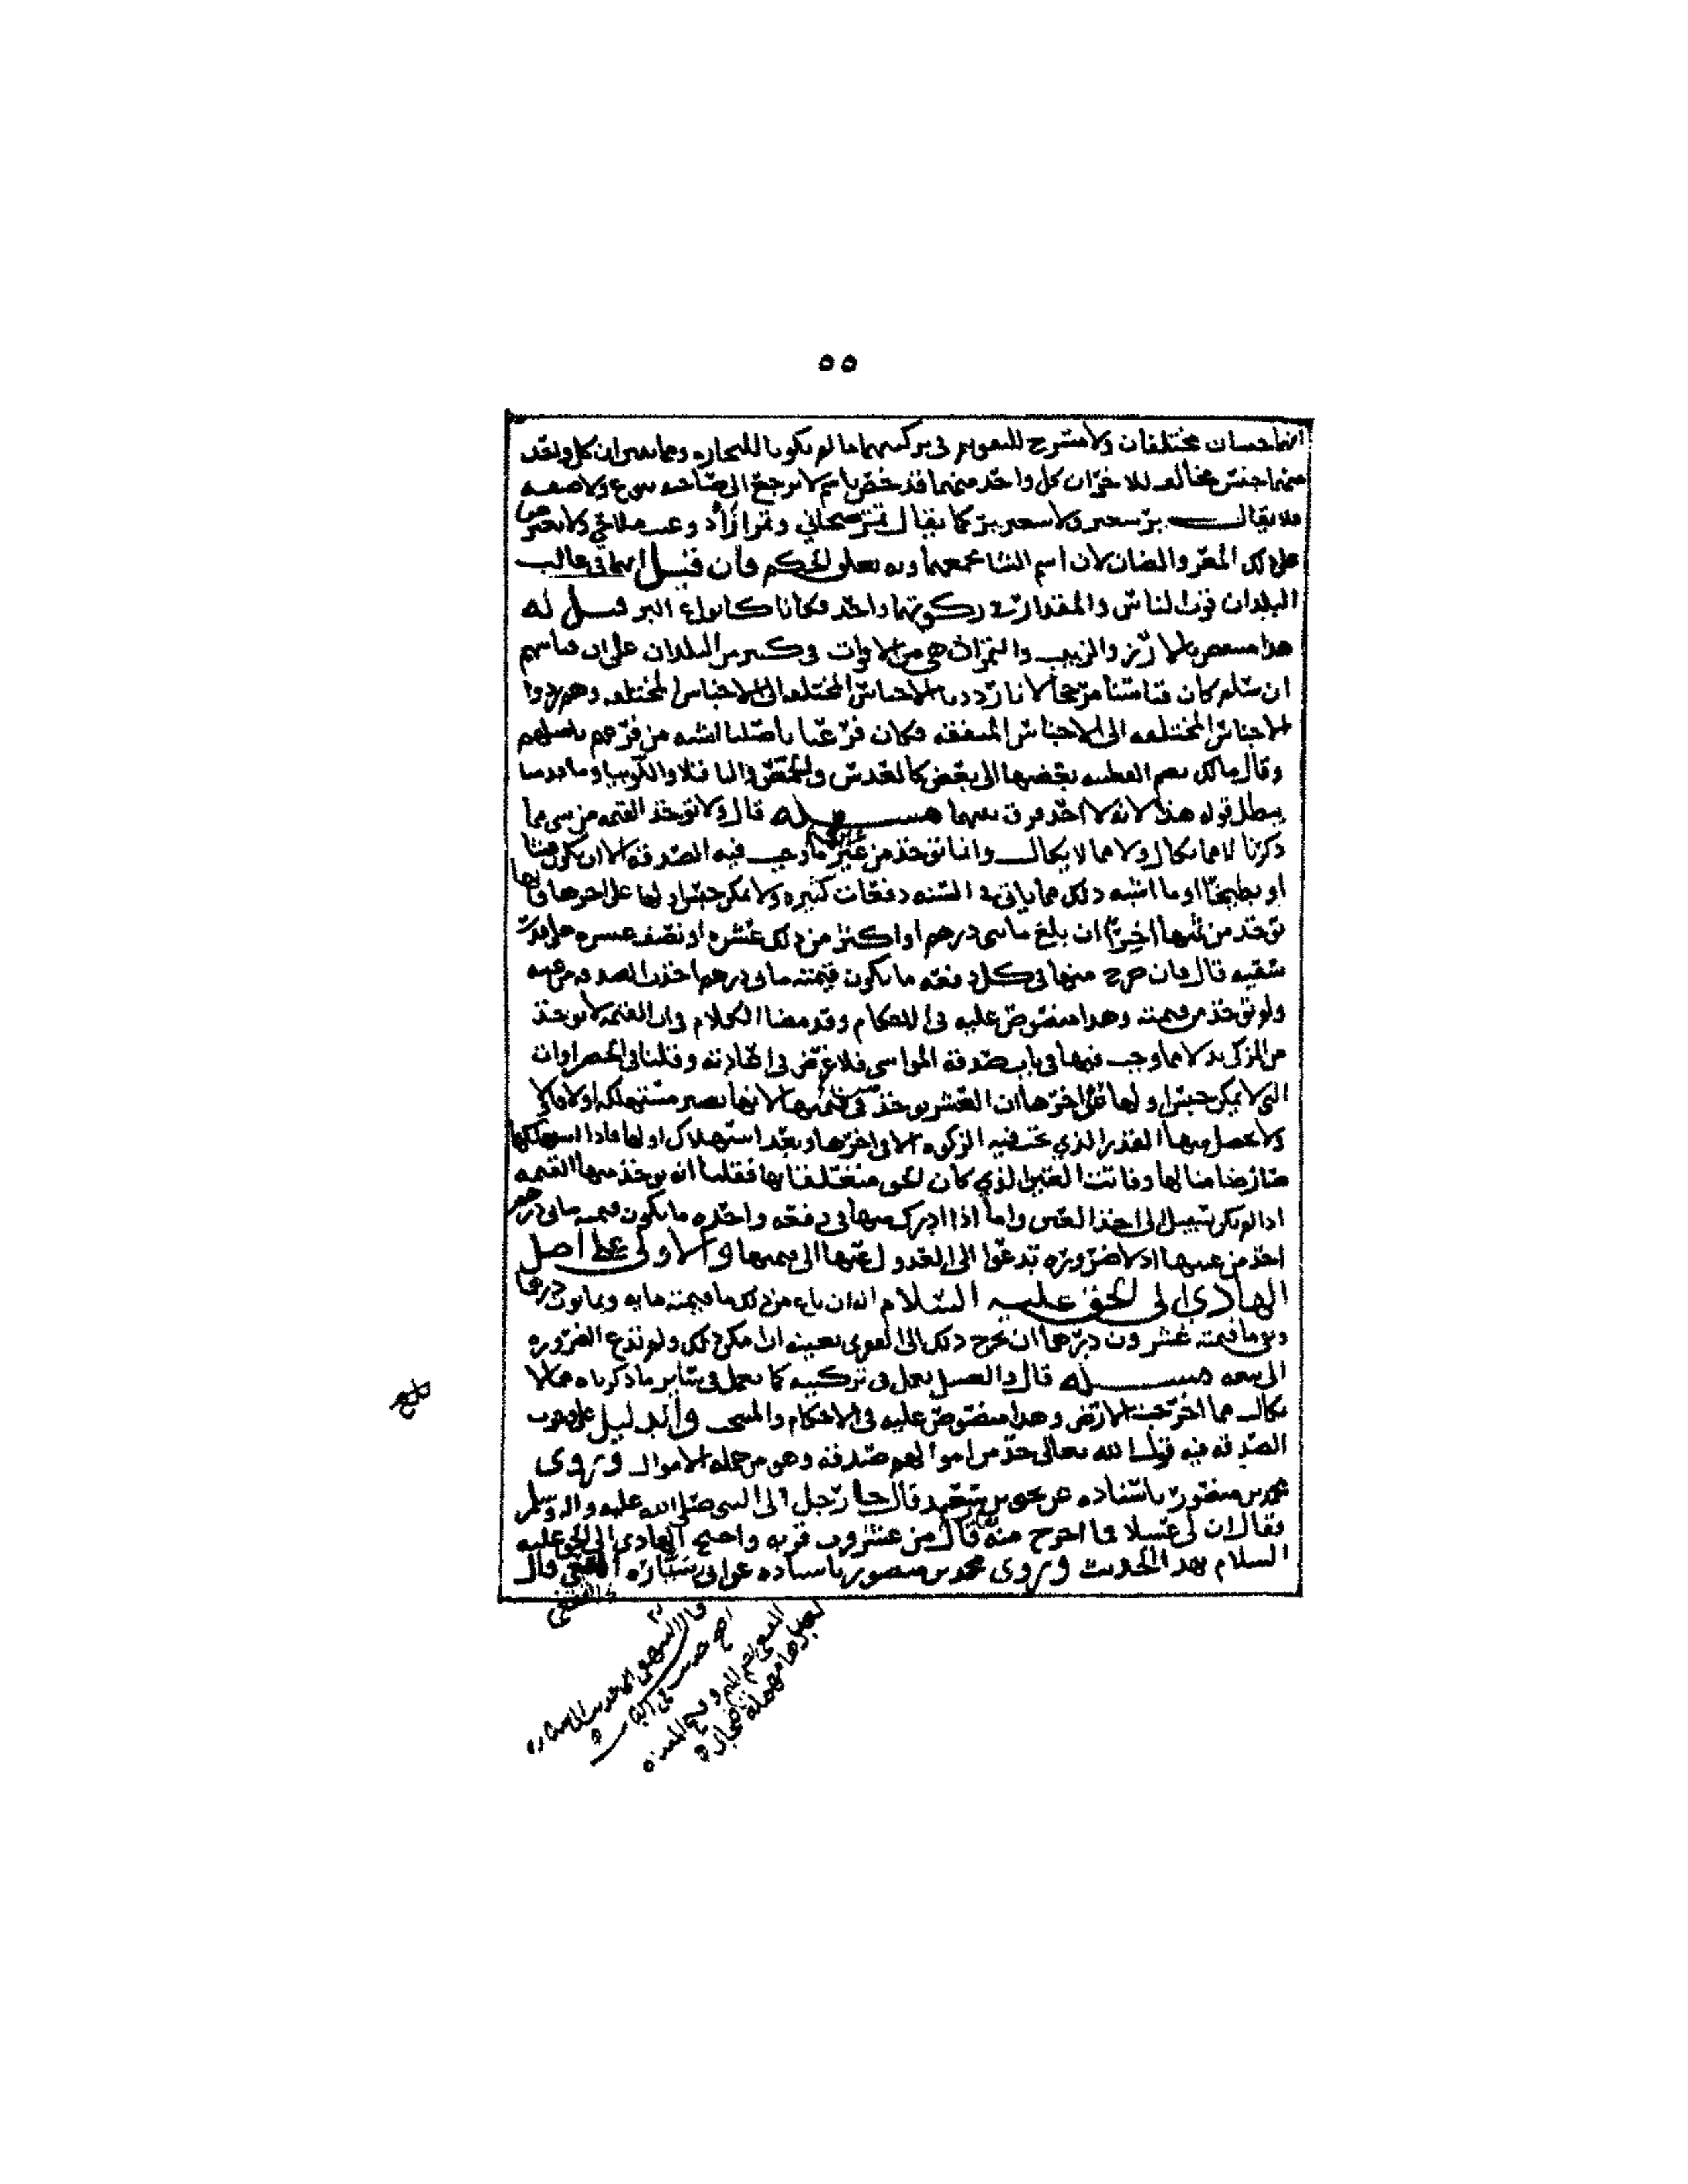 ٥٥
انهما جنسان مختلفان ولا مسرح للتقويم في تزكيتهما ما لم يكونا للتجارة ومما يبين ان كل واحد
منهما جنس مخالف للاخر ان كل واحد منهما قد خص باسم لا يرجع الى صاحبه بنوع ولا صفه
فلا يقال بر شعير ولا شعير بر كما يقال تمر صيحاني وتمرا زاد وعنب ملاحي ولا يعترض
على ذلك المعز والضان لان اسم الشا يجمعهما وبه تعلق الحكم فان قيل انهما في غالب
البلدان قوت الناس والمقدار في زكوتهما واحد فكانا كانواع البر قيل له
هذا منتقض بالارز والزبيب والتمر اذ هي من الاقوات في كثير من البلدان على ان قياسهم
ان سلم كان قياسنا مرجحا لانا رددنا الاجناس المختلفه الى الاجناس المختلفه وهم ردوا
الاجناس المختلفه الى الاجناس المتفقه فكان فرعنا باصلنا اشبه من فرعهم باصلهم
وقال مالك بضم القطنيه بعضها الى بعض كالعدس والحمص والباقلا واللوبيا وما قدمنا
يبطل قوله هذا لانه لا احد فرق بينهما مسئله قال ولا توخذ القيمه من شي مما
ذكرنا لا مما يكال ولا مما لا يكال وانما توخذ من عين ما وجب فيه الصدقه الا ان يكون قثا
او بطيخا او ما اشبه ذلك مما ياتي في السنه دفعات كثيره ولا يمكن حبس اولها على اخرها فانها
توخذ من ثمنها اخيرا ان بلغ مائتى درهم او اكثر من ذلك عشره او نصف عشره على قدر
سقيه قال فان خرج منها في كل دفعه ما يكون قيمته مائتي درهم اخذت الصدقه من عينه
ولم توخذ من قيمته وهذا منصوص عليه في الاحكام وقد مضا الكلام في ان القيمه لا توخذ
من المزكى بدلا مما وجب فيها في باب صدقة المواشي فلا غرض في اعادته وقلنا في الخضراوات
التي لا يمكن حبس اولها على اخرها ان العشر يوخذ من قيمتها لانها تصير مستهلكه اولا فاولا
ولا يحصل منها القدر الذي يجب فيه الزكوه الا في اخرها وبعد استهلاك اولها فاذا استهلكها
صار ضامنا لها وفاتت العين الذي كان الحق متعلقا بها فقلنا انه يوخذ منها القيمه
اذا لم يكن سبيل الى اخذ العين واما اذا ادرك منها في دفعه واحده ما يكون قيمته مائتي درهم
اخذ من عينها اذ لا ضروره تدعوا الى العدول عنها الى قيمتها والاولى على اصل
الهادي الى الحق عليه السلام اذا ان باع من ذلك ما قيمته مايه وثمانون درهما
وبقي ما قيمته عشرون درهما ان يخرج ذلك الى الفقرى بعينه ان امكن ذلك ولم تدع الضروره
الى بيعه مسئله قال والعسل يعمل في تزكيته كما يعمل في ساير ما ذكرناه مما لا
يكال مما اخرجت الارض وهذا منصوص عليه في الاحكام والمنتخب والدليل على وجوب
الصدقه فيه قول الله تعالى خذ من اموالهم صدقه وهو من جملة الاموال وروى
محمد بن منصور باسناده عن يحيى بن سعيد قال جا رجل الى النبي صلى الله عليه واله وسلم
فقال ان لى عسلا فما اخرج منه قال من عشر قرب قربه واحتج الهادي الى الحق عليه
السلام بهذا الحديث وروى محمد بن منصور باسناده عن ابي سياره المتعي قال